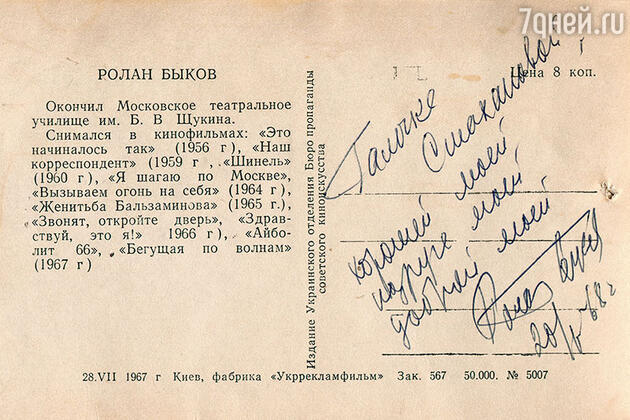 7дней.ru
РОЛАН БЫКОВ
Окончил Московское театральное
училище им. Б. В Щукина.
Снимался в кинофильмах: «Это
начиналось так» (1956 г), «Наш
корреспондент» (1959 г , «Шинель»
(1960 г), «Я шагаю по Москве»,
«Вызываем огонь на себя» (1964 г),
«Женитьба Бальзаминова» (1965 г.),
«Звонят, откройте дверь», «Здрав-
ствуй, это я!» 1966 г), «Айбо-
лит 66», «Бегущая по волнам»
(1967 г)
Издание Украинского отделения Бюро пропаганды
советского киноискусства
Цена 8 коп.
Галочке
Стакановой
хорошей моей
подруге моей
доброй моей
Ролан Быков
68 г
28.VII 1967 г Киев, фабрика «Укррекламфильм» Зак. 567 50.000. № 5007